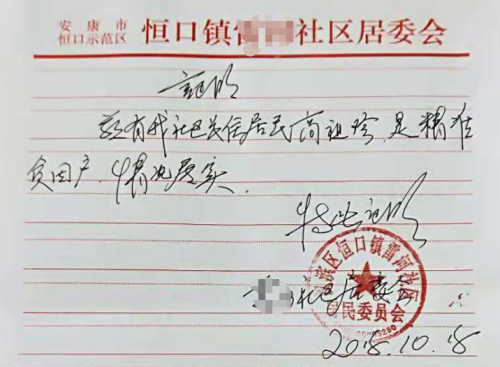 安康市
恒口示范区 恒口镇 社区居委会
证明
兹有我社区居住居民高祖珍,是精准
贫困户,情况属实.
特此证明
社区居委会
滨区恒口镇雷河社区
居民委员会
2018.10.18